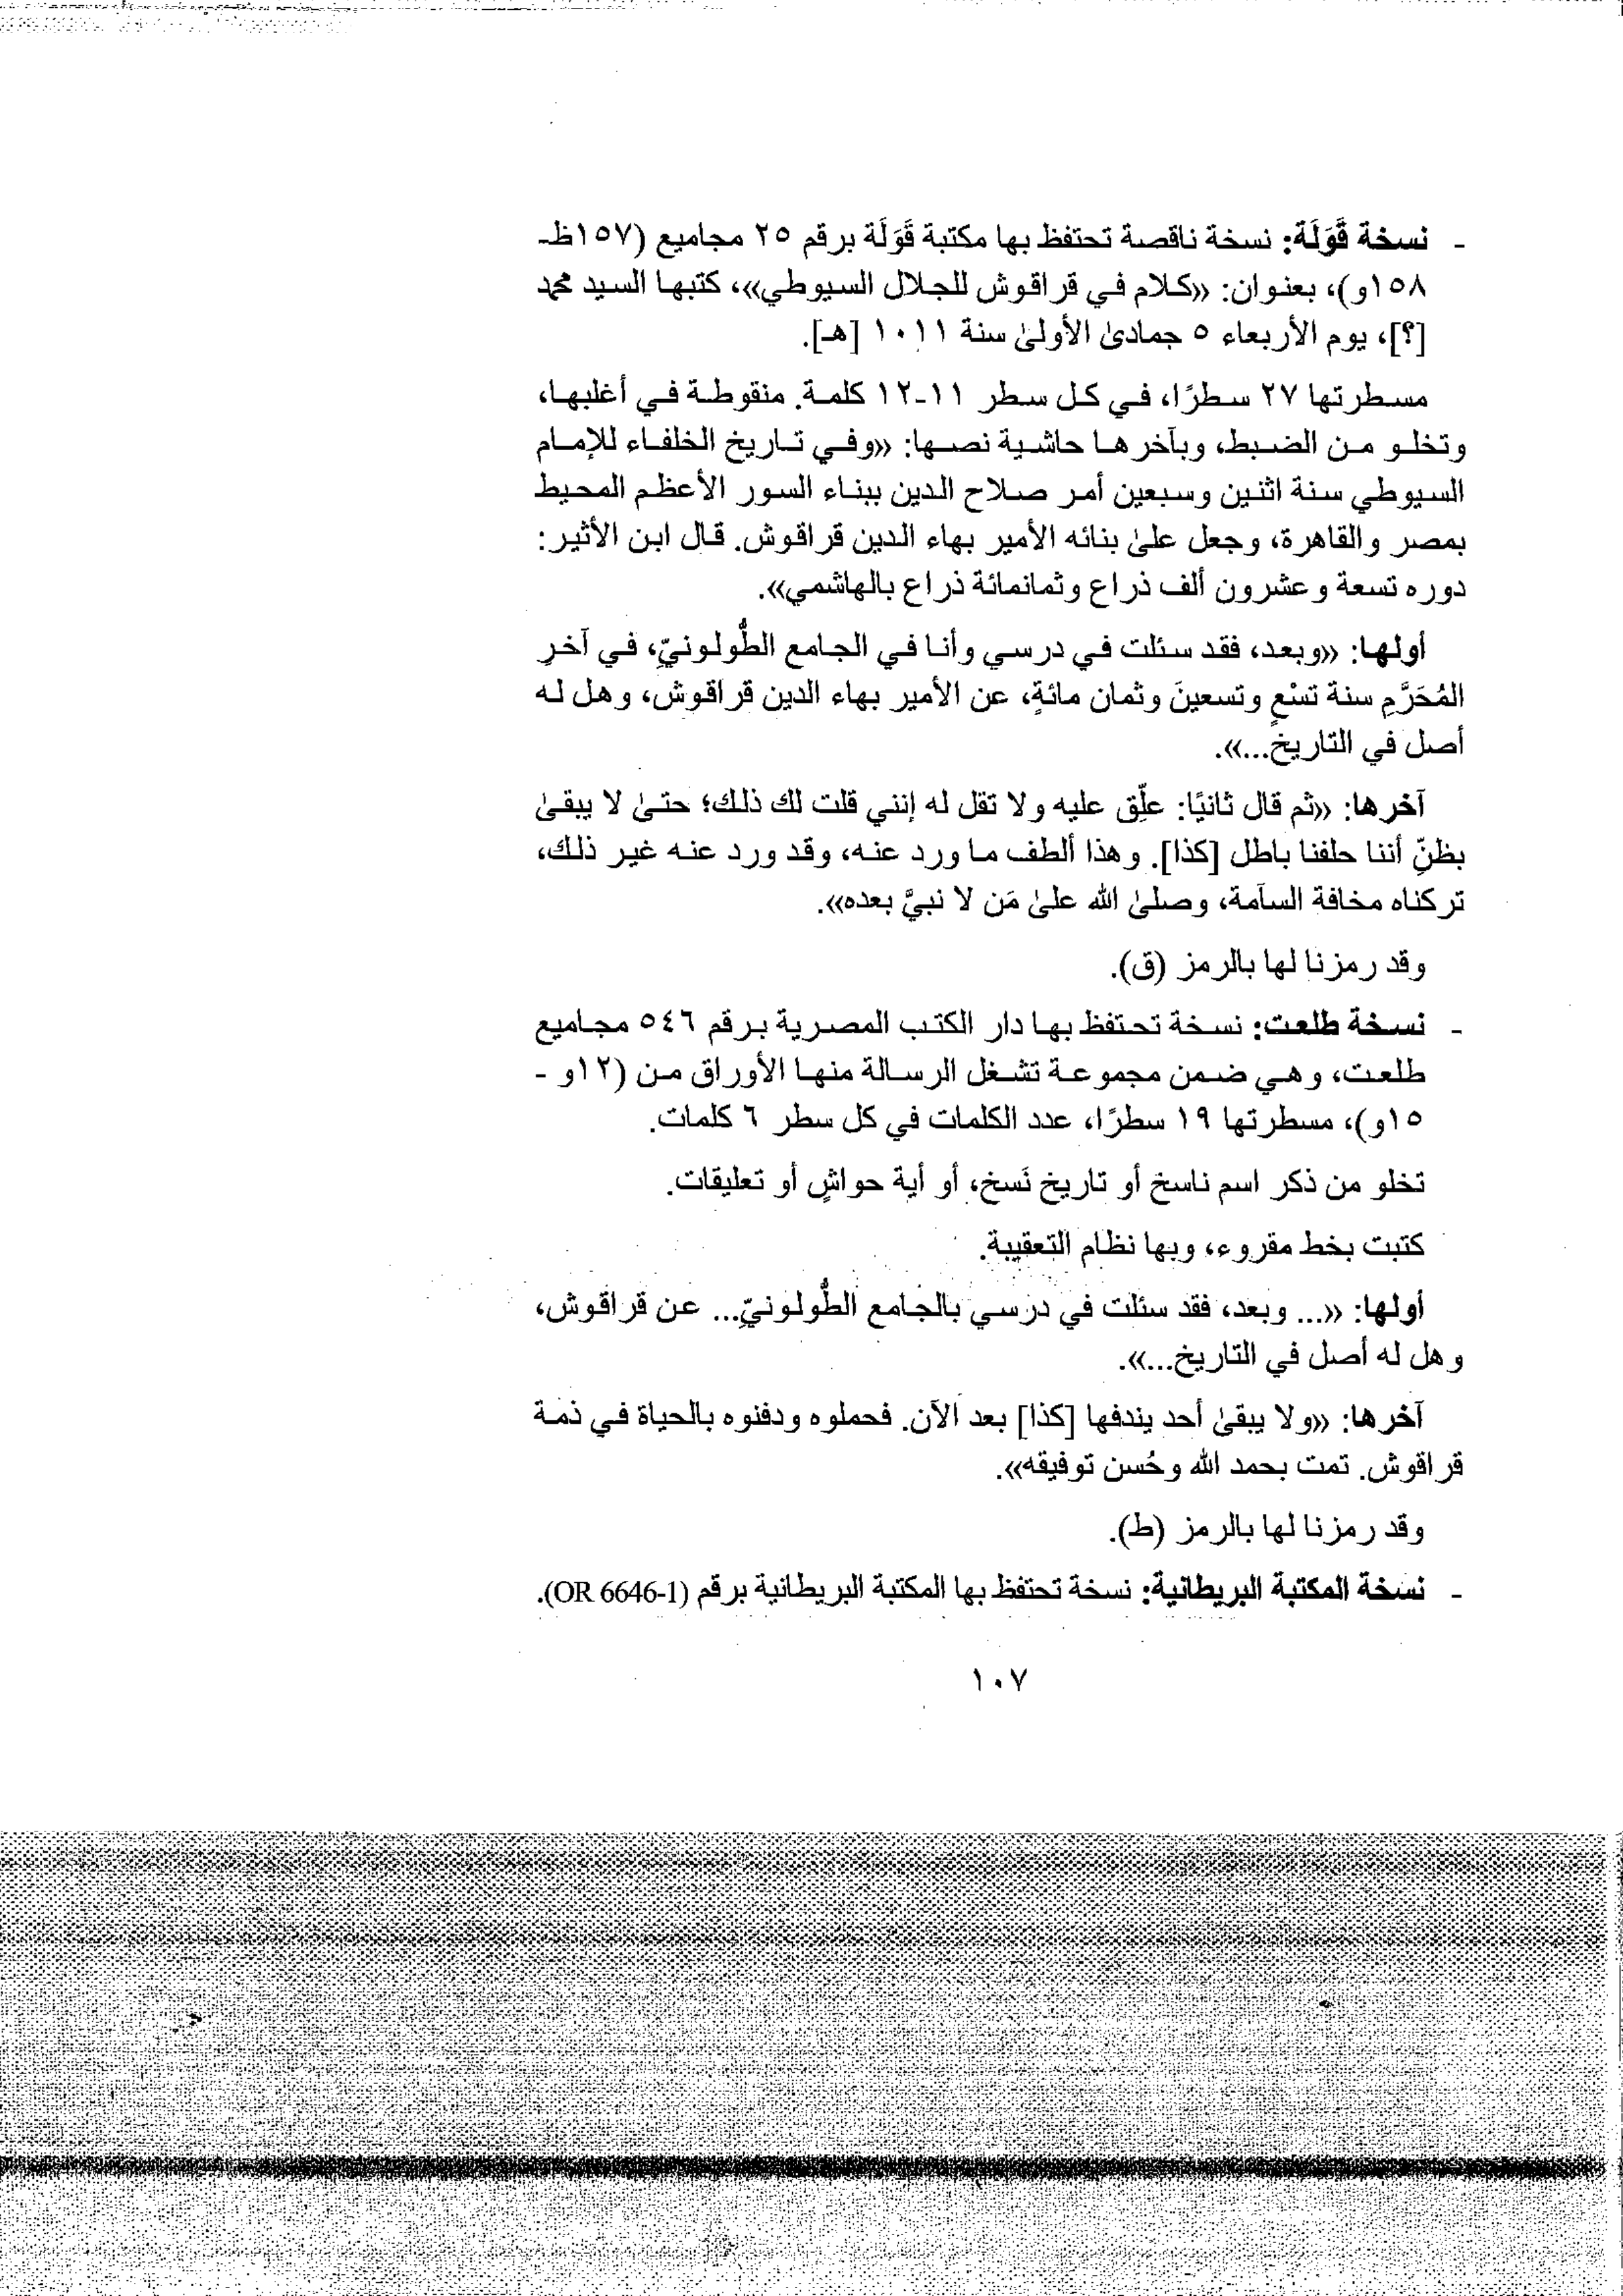 - نسخة قَوَلَة: نسخة ناقصة تحتفظ بها مكتبة قَوَلَة برقم ٢٥ مجاميع (١٥٧ظ-
١٥٨و)، بعنوان: «كلام في قراقوش للجلال السيوطي»، كتبها السيد محمد
[؟]، يوم الأربعاء ٥ جمادىٰ الأولىٰ سنة ١٠١١ [هـ].
مسطرتها ٢٧ سطرًا، في كل سطر ١١-١٢ كلمة. منقوطة في أغلبها،
وتخلو من الضبط، وبآخرها حاشية نصها: «وفي تاريخ الخلفاء للإمام
السيوطي سنة اثنين وسبعين أمر صلاح الدين ببناء السور الأعظم المحيط
بمصر والقاهرة، وجعل علىٰ بنائه الأمير بهاء الدين قراقوش. قال ابن الأثير:
دوره تسعة وعشرون ألف ذراع وثمانمائة ذراع بالهاشمي».
أولها: «وبعد، فقد سئلت في درسي وأنا في الجامع الطُّولونيّ، في آخرِ
المُحَرَّمِ سنة تسْعٍ وتسعينَ وثمان مائةٍ، عن الأمير بهاء الدين قراقوش، وهل له
أصل في التاريخ...».
آخرها: «ثم قال ثانيًا: علِّق عليه ولا تقل له إنني قلت لك ذلك؛ حتىٰ لا يبقىٰ
بظنِّ أننا حلفنا باطل [كذا]. وهذا ألطف ما ورد عنه، وقد ورد عنه غير ذلك،
تركناه مخافة السآمة، وصلىٰ الله علىٰ مَن لا نبيَّ بعده».
وقد رمزنا لها بالرمز (ق).
- نسخة طلعت: نسخة تحتفظ بها دار الكتب المصرية برقم ٥٤٦ مجاميع
طلعت، وهي ضمن مجموعة تشغل الرسالة منها الأوراق من (١٢و -
١٥و)، مسطرتها ١٩ سطرًا، عدد الكلمات في كل سطر ٦ كلمات.
تخلو من ذكر اسم ناسخ أو تاريخ نَسخ، أو أية حواشٍ أو تعليقات.
كتبت بخط مقروء، وبها نظام التعقيبة.
أولها: «... وبعد، فقد سئلت في درسي بالجامع الطُّولونيّ... عن قراقوش،
وهل له أصل في التاريخ...».
آخرها: «ولا يبقىٰ أحد يندفها [كذا] بعد الآن. فحملوه ودفنوه بالحياة في ذمة
قراقوش. تمت بحمد الله وحُسن توفيقه».
وقد رمزنا لها بالرمز (ط).
- نسخة المكتبة البريطانية: نسخة تحتفظ بها المكتبة البريطانية برقم (OR 6646-1).
١٠٧